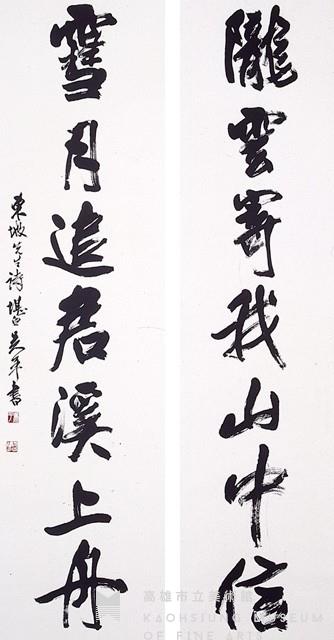 隴雲寄我山中信
雪月追君溪上舟
東坡先生詩 堪白吳平書
高雄市立美術館
KAOHSIUNG MUSEUM
OF FINE ART